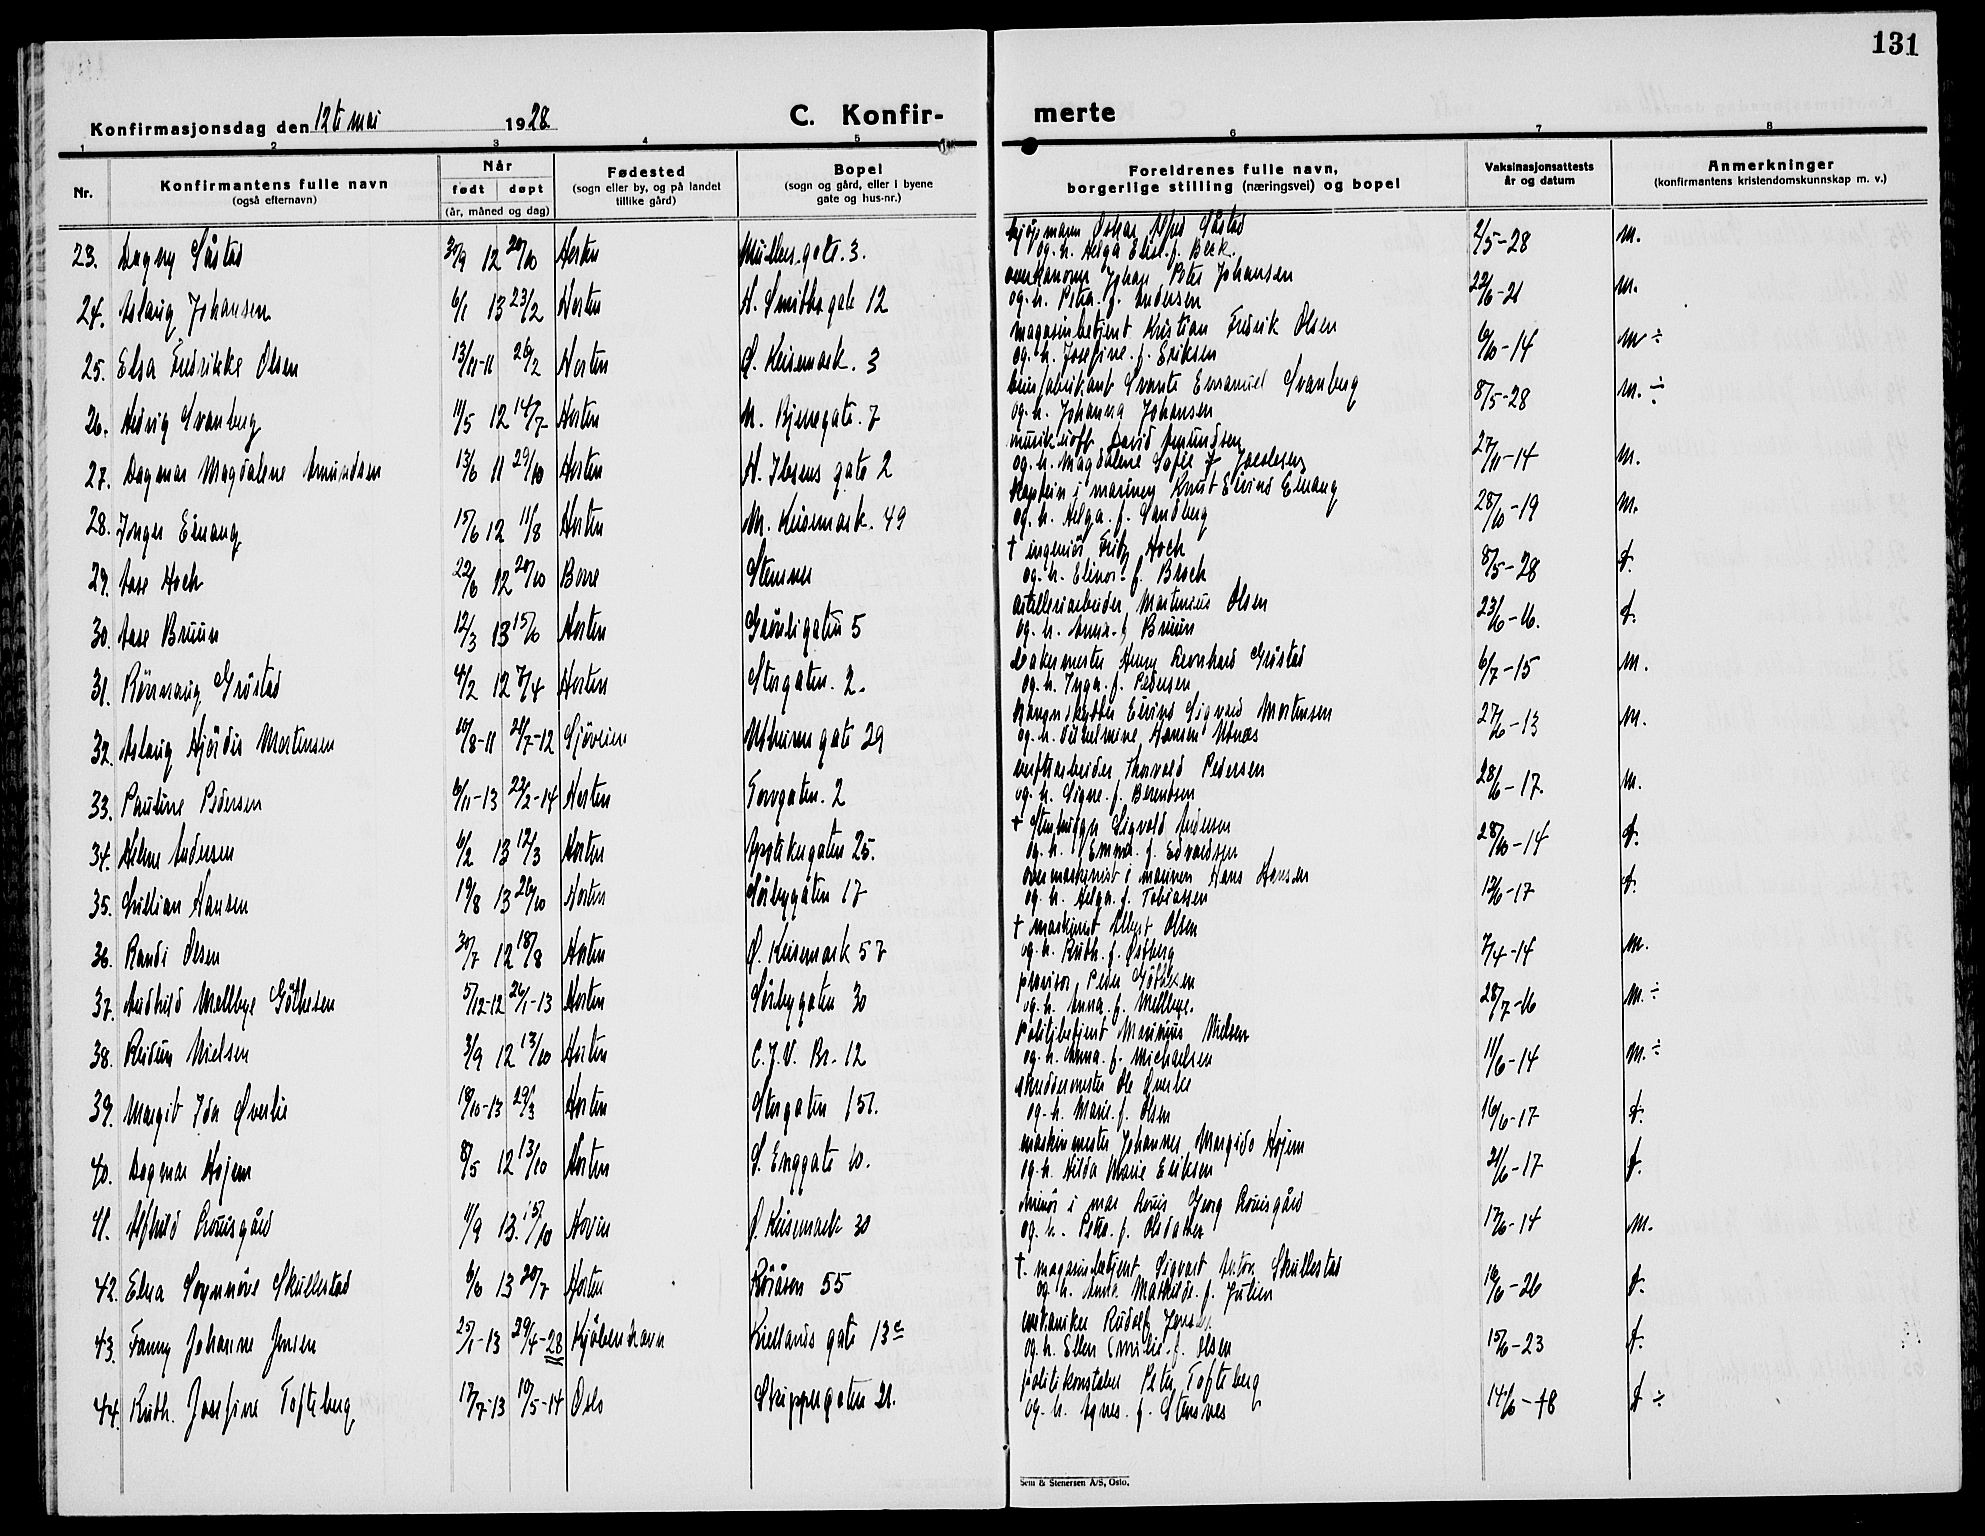 131
Konfirmasjonsdag den 12te mai 1928 C. Konfir- merte
1 2 3 4 5 6 7 8
Nr. Konfirmantens fulle navn (også efternavn) Når født døpt (år, måned og dag) Fødested (sogn eller by, og på landet tillike gård) Bopel (sogn og gård, eller i byene gate og hus-nr.) Foreldrenes fulle navn, borgerlige stilling (næringsvei) og bopel Vaksinasjonsattests år og datum Anmerkninger (konfirmantens kristendomskunnskap m. v.)
23. Dagny Såstad 30/9 12 20/10 Horten Müllers gate. 3. Oskar Såstad
og h. Helga Elise f. Beck. 2/5-28 m.
24. Aslaug Johansen 6/1 13 23/2 Horten H. Smiths gate 12 Johan Peter Johansen
og h. Petra f. Andersen 22/6-21 m.
25. Elsa Fredrikke Olsen 13/11-11 26/2 Horten Ø. Keisemark. 3 magasinbetjent Kristian Fredrik Olsen
og h. Josefine f. Eriksen 6/10-14 m ÷
26. Hedvig Svanberg 11/5 12 14/7 Horten N. Bjerregate. 7 Svante Emanuel Svanberg
og h. Johanna Johansen 8/5-28 m. ÷
27. Dagmar Magdalene Amundsen 13/6 11 29/10 Horten H. Ibsens gate 2 David Amundsen
og h. Magdalene Sofie f. 27/11-14 m.
28. Inger Einang 15/6 12 11/8 Horten M. Keisemark. 49 kaptein i marinen Knut Eivind Einang
og h. Helga f. Sandberg 28/10-19 m.
29. Aase Hoch 22/6 12 20/10 Borre † ingeniør Fritz Hoch
og h. Elinor f. Broch 8/5-28 d.
30. Aase Bruun 12/3 13 15/6 Horten Grønligaten 5 artilleriarbeider Martinius Olsen
og h. Anna f. Bruun 23/6-16. d.
31. Rønnaug Grøstad 4/2 12 7/4 Horten Storgaten. 2. bakermester Henry Leonhard Grøstad
og h. Inga f. Pedersen 6/7-15 m.
32. Aslaug Hjørdis Mortensen 10/8-11 21/7-12 gate 29 Eivind Sigvard Mortensen
og h. Vilhelmine Hansen 27/6-13 m.
33. Pauline Pedersen 6/11-13 22/2-14 Horten Torvgaten. 2 verftsarbeider Thorvald Pedersen
og h. Signe f. Berendsen 28/6-17. m.
34. Helene Andersen 6/2 13 12/3 Horten Apotekergaten 25. † Sigvald Andersen
og h. Emma f. Edvardsen 28/10-14 d.
35. Lillian Hansen 19/8 13 26/10 Horten Sørbygaten 17 overmaskinist i marinen Hans Hansen
og h. Helga f. Tobiassen 12/6-17 d.
36. Randi Olsen 30/7 12 18/8 Horten Ø. Keisemark 57 † maskinist Albert Olsen
og h. Ruth f. Østberg 7/4-14 m.
37. Audhild Mellbye Göthesen 5/12-12 26/1-13 Horten Sørbygaten 30 provisor Peder Göthesen
og h. Anna f. Mellbye. 28/7-16 m. ÷
38. Reidun Nielsen 3/9 12 13/10 Horten C. J. V. Br. 12 Politibetjent Marinius Nielsen
og h. Anna f. Michaelsen 11/6-14 m. ÷
39. Margit Ida Øverlie 18/10-13 29/3 Horten Storgaten 151. skreddermester Ole Øverlie
og h. Marie f. Olsen 16/6-17 d.
40. Dagmar Hojem 8/5 12 13/10 Horten S. Enggate 10. maskinmester Johannes Margido Hojem
og h. Hilda Marie Eriksen 21/6-17 d.
41. Alfhild Rouisgård 11/9 13 15/10 Ø. Keisemark 30 minør i mar. Georg Rouisgård
og h. Petra f. 17/6-14 m.
42. Elna Synnøve Skullestad 6/6 13 20/7 Horten Røråsen 55 † magasinbetjent Sigvart Anton Skullestad
og h. Anna Mathilde f. Julien 16/6-26 d.
43. Fanny Johanne Jensen 25/1-13 29/4-28 Kjøbenhavn Kiellands gate 13c mekaniker Rudolf Jensen
og h. Ellen Emilie f. Olsen 15/6-23 d.
44. Ruth Josefine Tofteberg 17/7-13 10/5-14 Oslo Skippergaten 21. politikonstabel Peter Tofteberg
og h. Agnes f. Stensnes 14/6-18 d ÷
Sem & Stenersen A/S, Oslo.